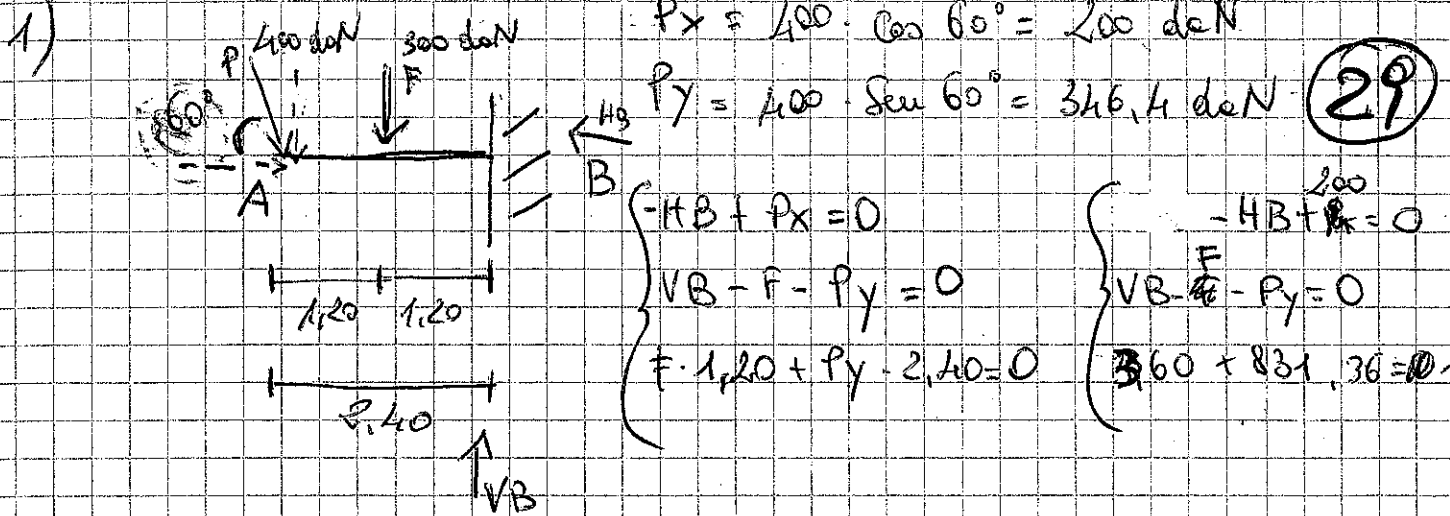 1)
P 400 daN
300 daN
F
60°
A
HB
B
1,20 1,20
2,40
VB
Px = 400 · cos 60° = 200 daN
Py = 400 · Sen 60° = 346,4 daN
29
-HB + Px = 0
VB - F - Py = 0
F · 1,20 + Py · 2,40 = 0
200
-HB + = 0
F
VB - - Py = 0
360 + 831,36 = 0